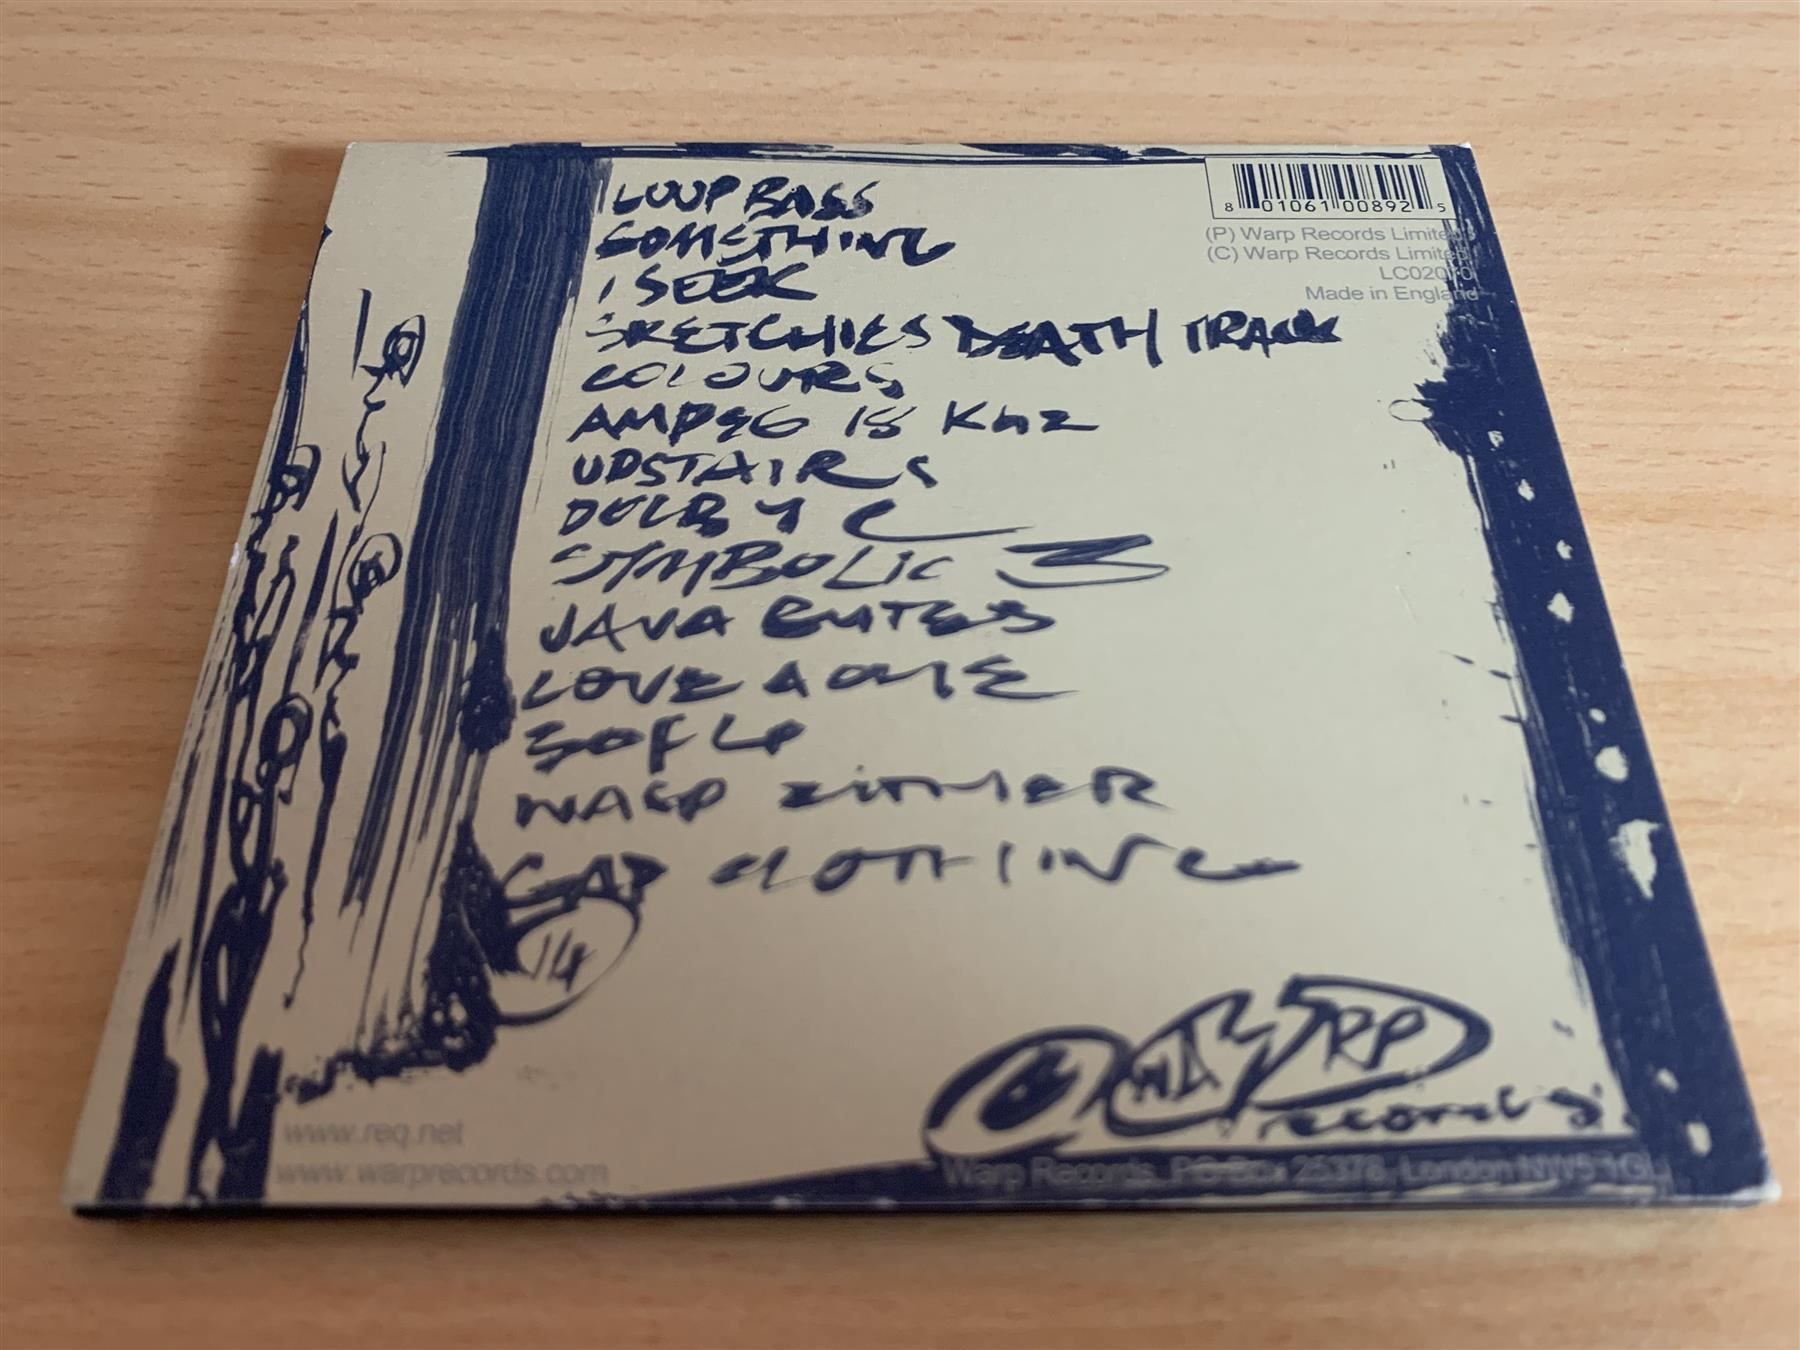 LOOP BASS
SOMETHING
I SEEK
SKETCHIES DEATH TRACK
COLOURS
AMPEG 18 Khz
UPSTAIRS
DOLBY C
SYMBOLIC 3
JAVA BYTES
LOVE
SOFLY
WASP EITHER
CLOTHING
14
WARP
records
8 01061 00892 5
(P) Warp Records Limited
(C) Warp Records Limited
LC02070
Made in England
www.req.net
www.warprecords.com
Warp Records, PO Box 25378, London NW5 1GL